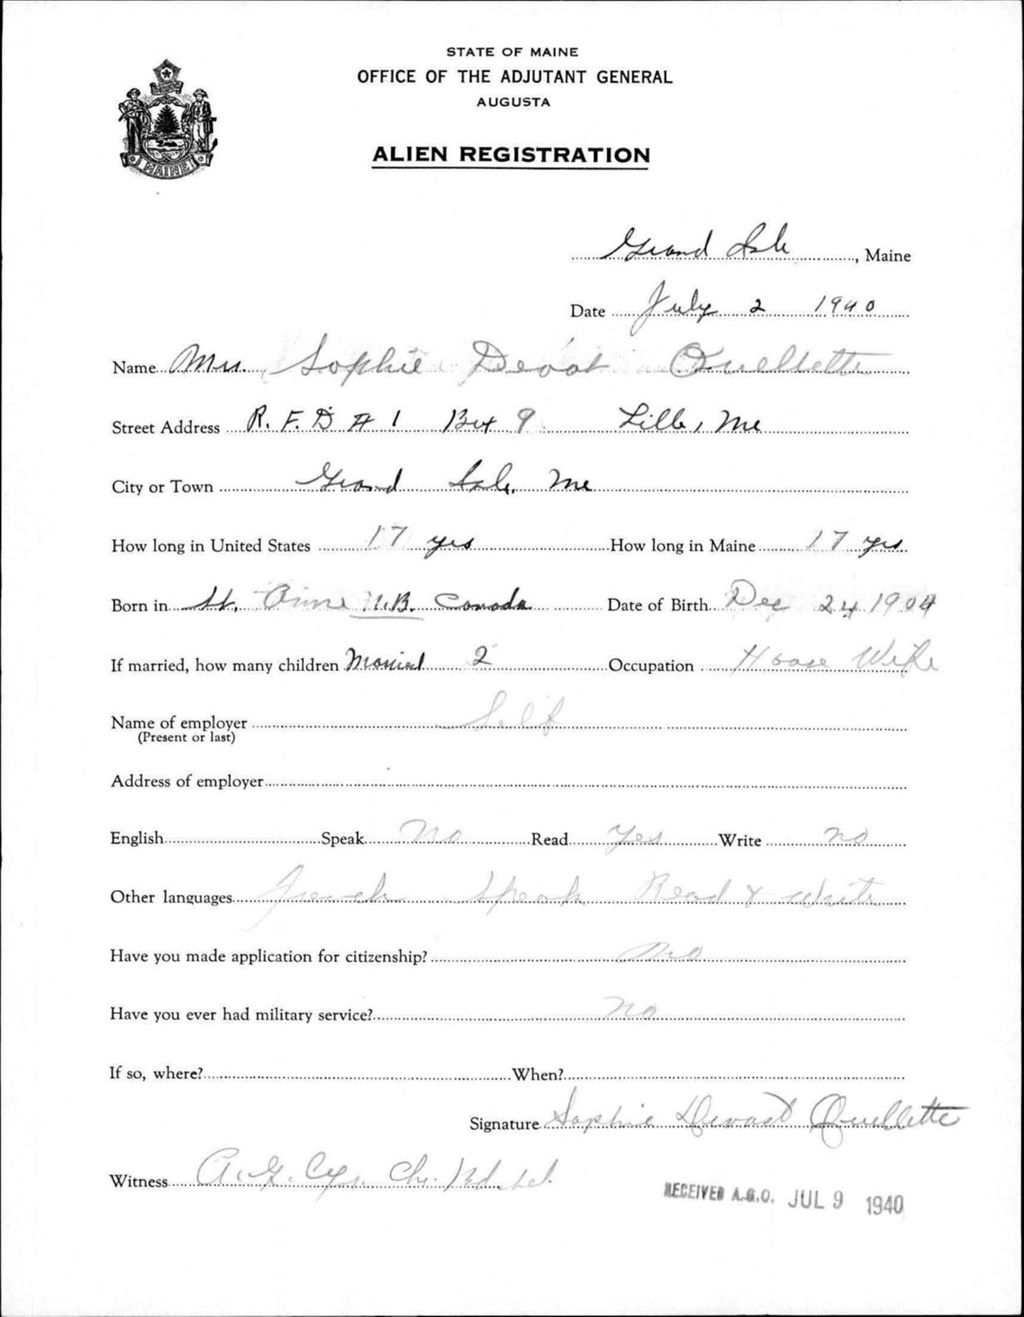 STATE OF MAINE
OFFICE OF THE ADJUTANT GENERAL
AUGUSTA
MAINE
ALIEN REGISTRATION
Grand Isle, Maine
Date July 2 1940
Name Mrs. Sophie Devost Ouellette
Street Address R. F. D # 1 Box 9 Lille, Me
City or Town Grand Isle, Me
How long in United States 17 yrs How long in Maine 17 yrs
Born in St. Anne N.B. Canada Date of Birth Dec 24 1904
If married, how many children Married 2 Occupation House Wife
Name of employer Self
(Present or last)
Address of employer
English Speak No Read Yes Write no
Other languages French Speak Read & Write
Have you made application for citizenship? No
Have you ever had military service? no
If so, where? When?
Signature Sophie Devost Ouellette
Witness A. G. Cyr. Ch.
RECEIVED A.G.O. JUL 9 1940